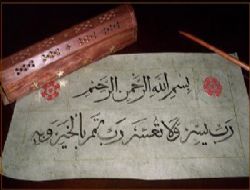 بسم الله الرحمن الرحيم
رب يسر ولا تعسر رب تمم بالخير وبه